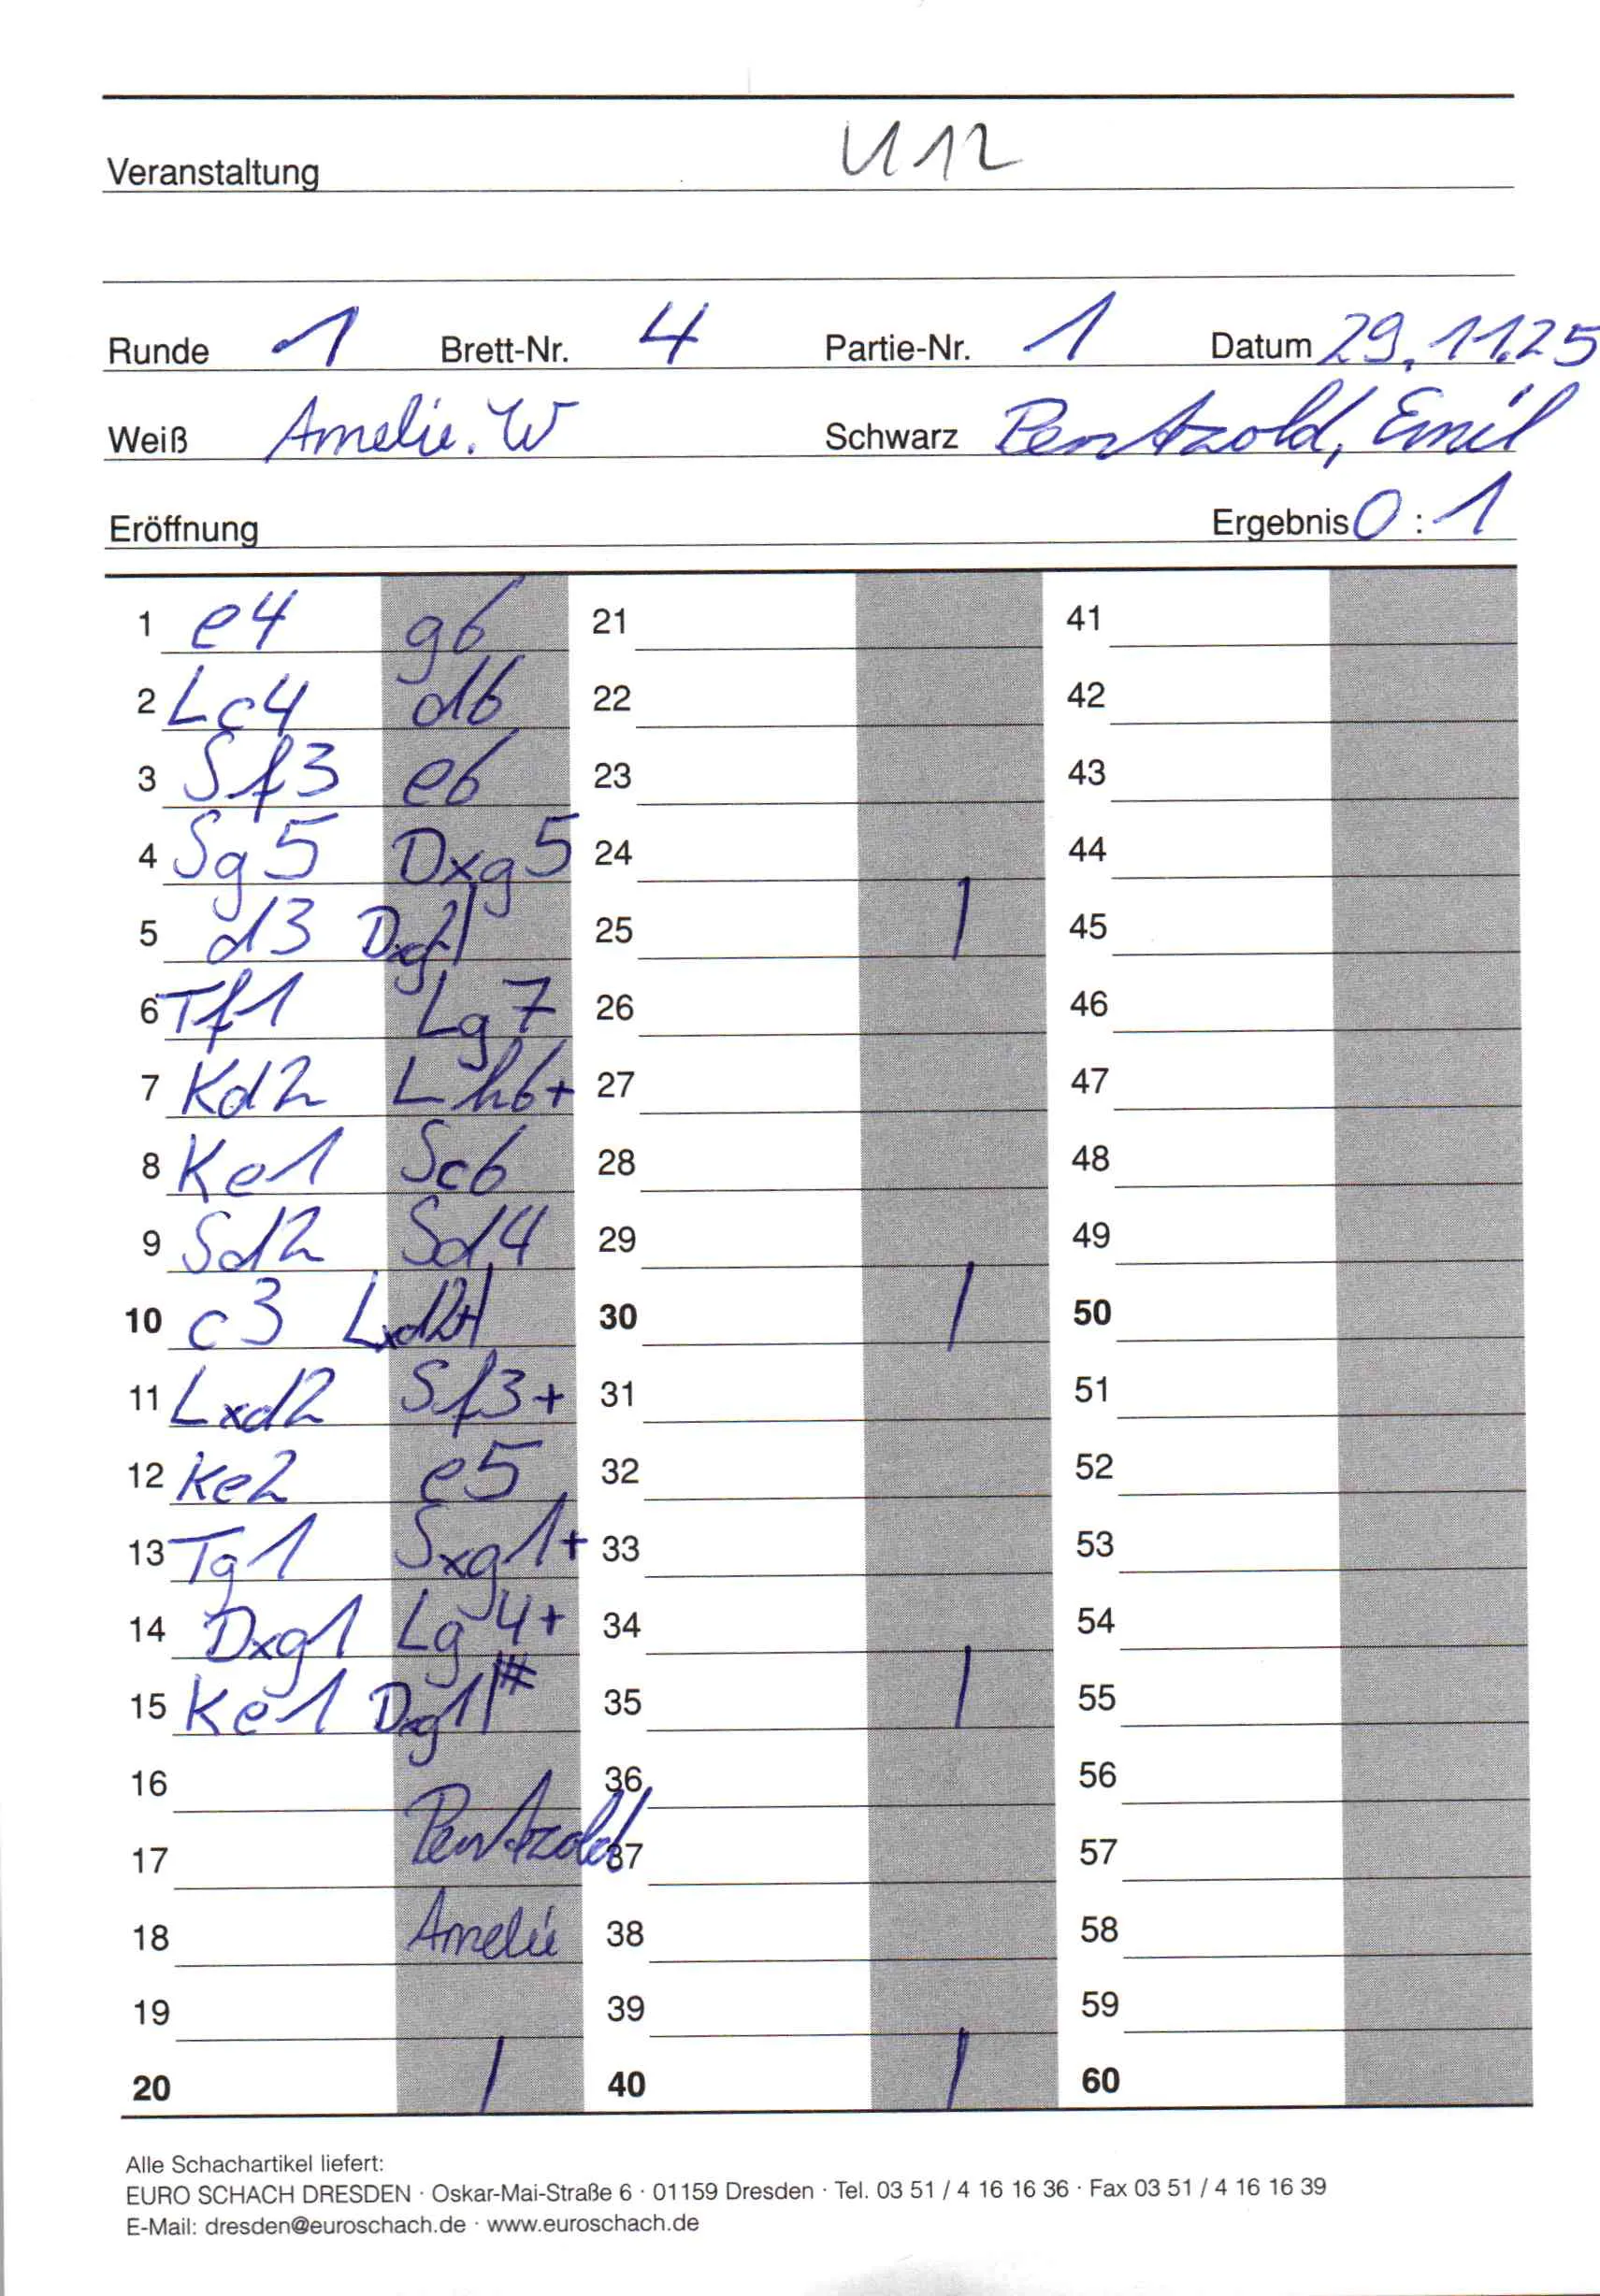 Veranstaltung U12
Runde 1 Brett-Nr. 4 Partie-Nr. 1 Datum 29.11.25
Weiß Amelie. W Schwarz Pentzold, Emil
Eröffnung Ergebnis 0 : 1
1 e4 g6 21 41
2 Lc4 d6 22 42
3 Sf3 e6 23 43
4 Sg5 Dxg5 24 44
5 d3 Dxg2 | 25 | 45
6 Tf1 Lg7 26 46
7 Kd2 Lh6+ 27 47
8 Ke1 Sc6 28 48
9 Sd2 Sd4 29 49
10 c3 Lxd2+ | 30 | 50
11 Lxd2 Sf3+ 31 51
12 Ke2 e5 32 52
13 Tg1 Sxg1+ 33 53
14 Dxg1 Lg4+ 34 54
15 Ke1 Dxg1 | # 35 | 55
16 36 56
Pentzold
17 37 57
18 Amelie 38 58
19 39 59
20 | 40 | 60
Alle Schachartikel liefert:
EURO SCHACH DRESDEN · Oskar-Mai-Straße 6 · 01159 Dresden · Tel. 03 51 / 4 16 16 36 · Fax 03 51 / 4 16 16 39
E-Mail: dresden@euroschach.de · www.euroschach.de